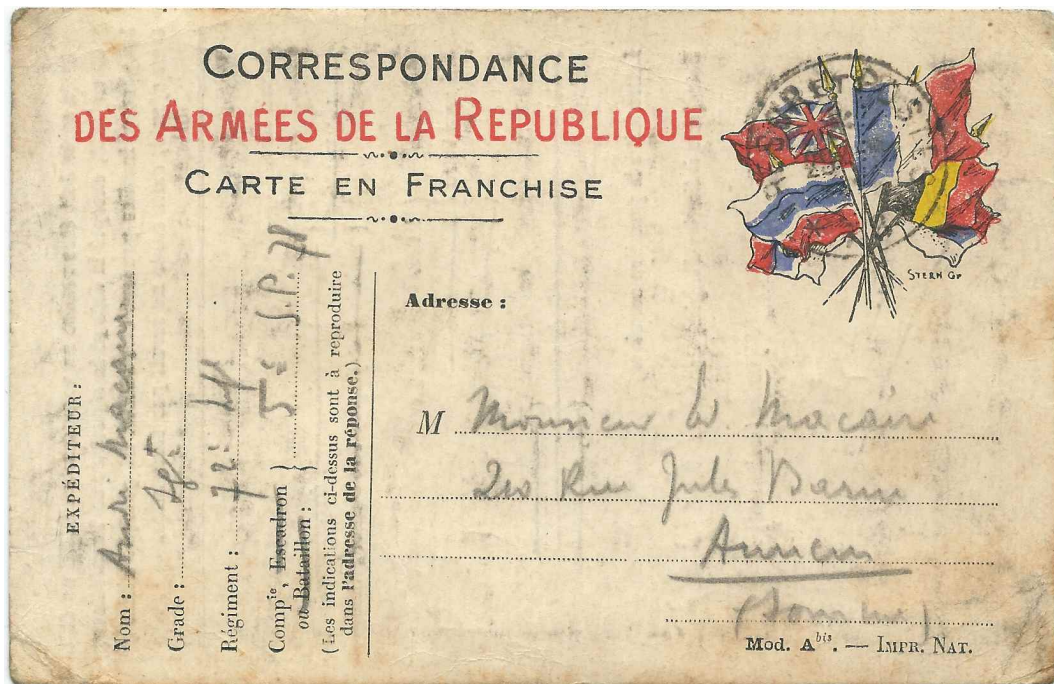 CORRESPONDANCE
DES ARMÉES DE LA REPUBLIQUE
CARTE EN FRANCHISE
STERN Gr
EXPÉDITEUR:
Nom : André Macaire
Grade : Sgt
Régiment : 72e
Compie, Escadron } 5e S.P. 78
ou Bataillon :
(Les indications ci-dessus sont à reproduire
dans l'adresse de la réponse.)
Adresse :
M Monsieur Macaire
Rue Jules Barni
Amiens
(Somme)
Mod. Abis. — IMPR. NAT.